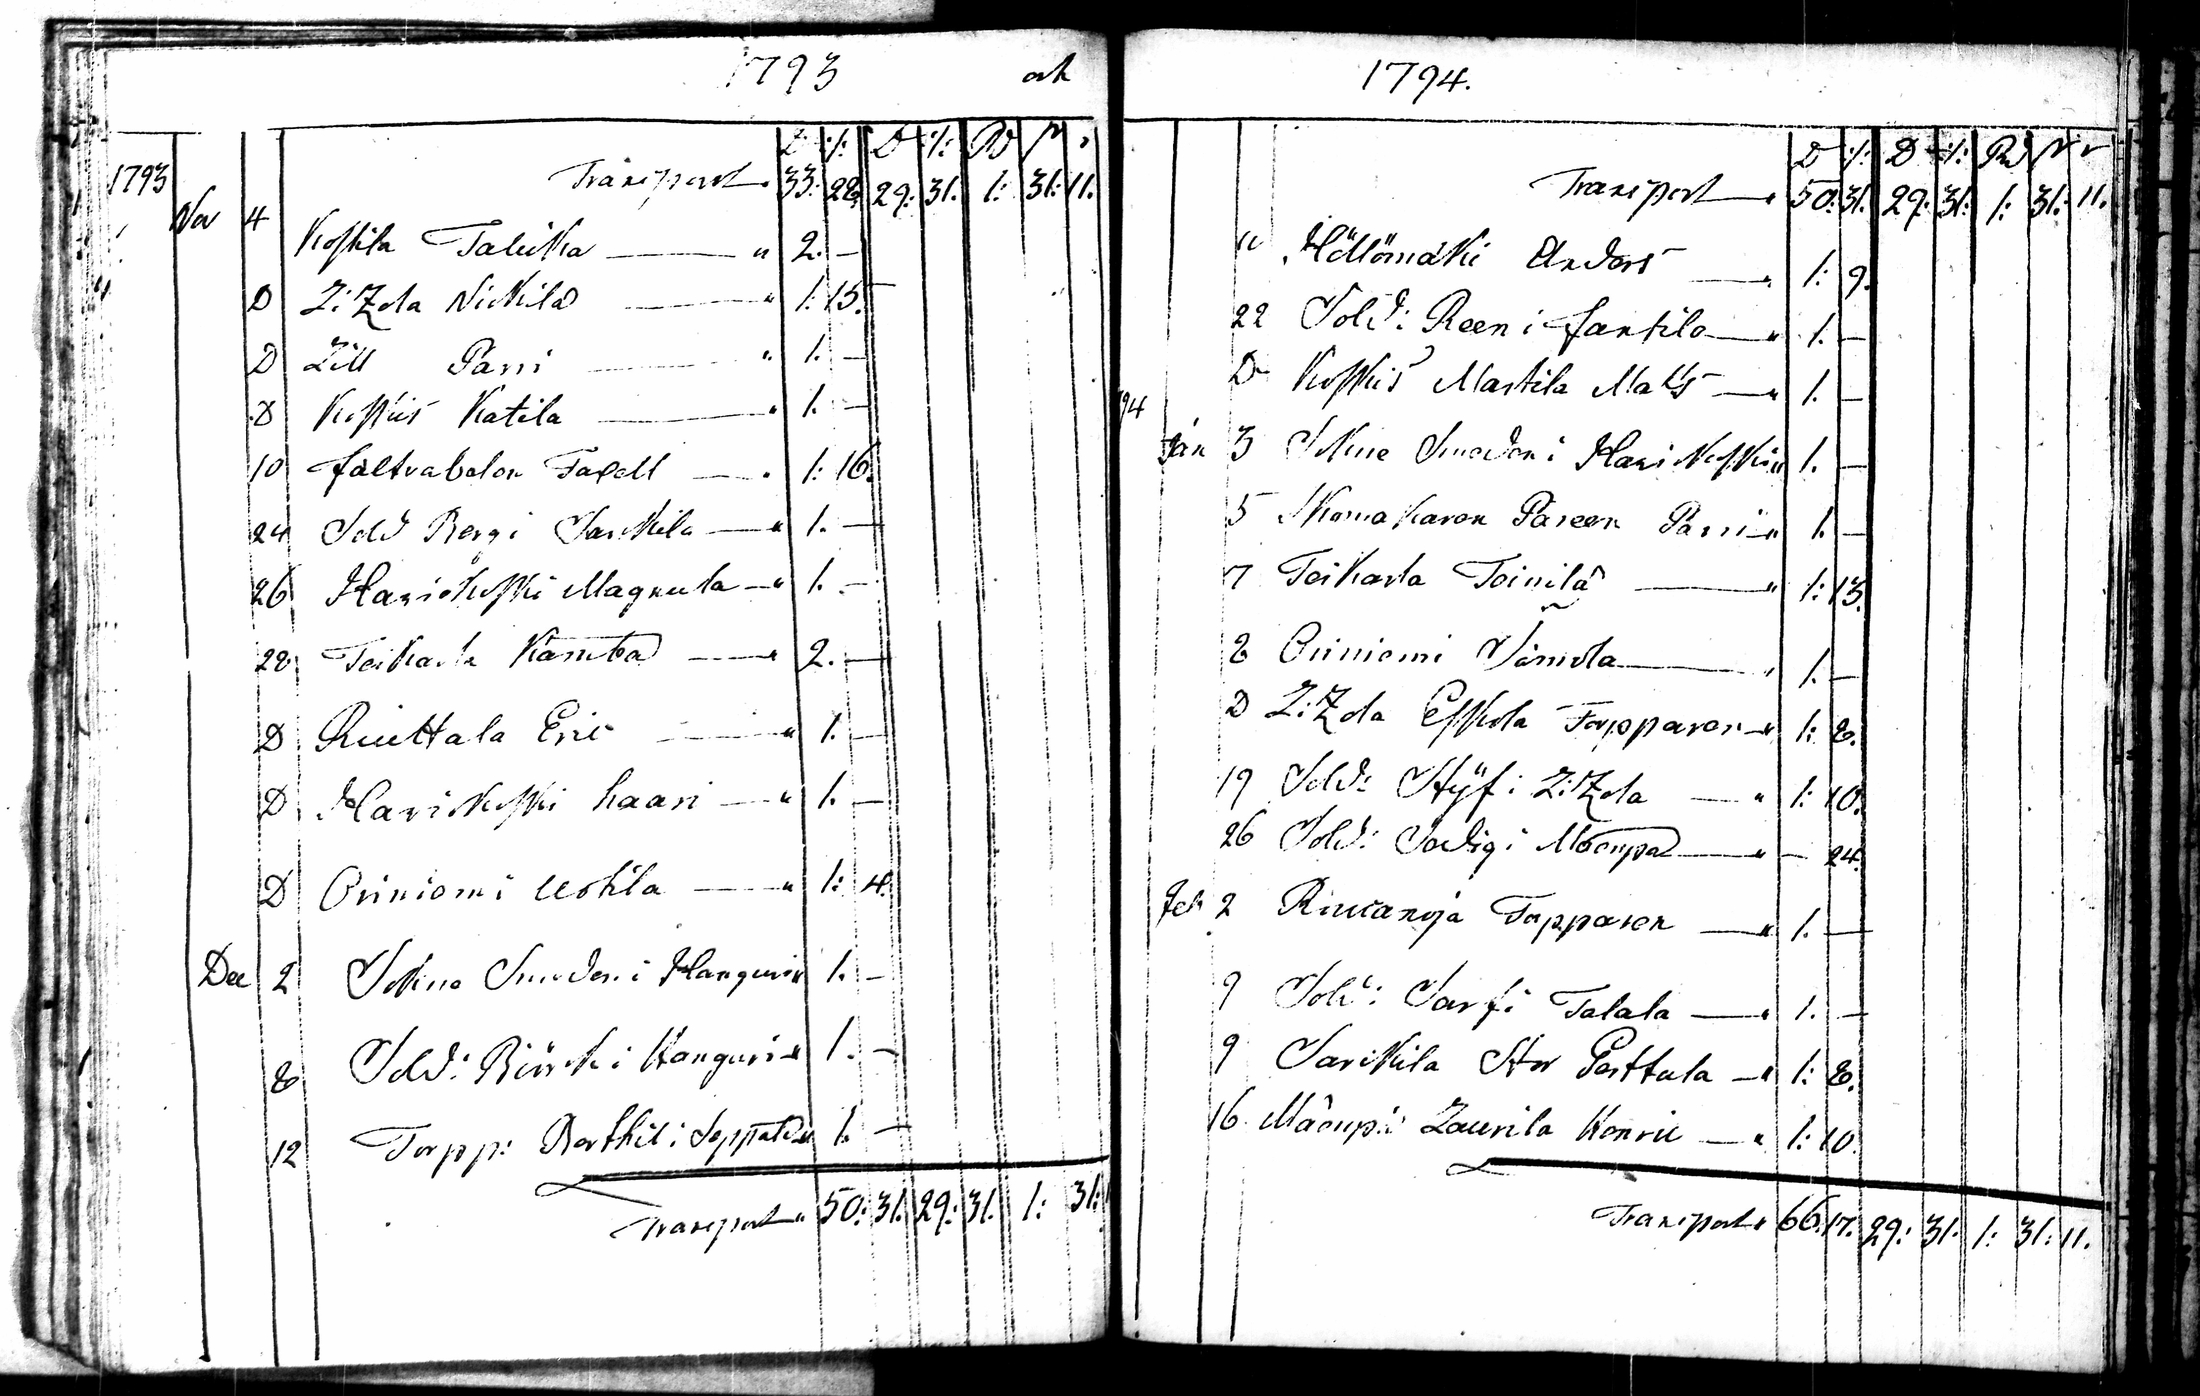 1793 och
D :/: D :/: RD
1793 Transport 33: 28. 29: 31. 1: 31: 11.
Nov 4 Koskila Talicka " 2. —
D Zi Zola Nickila " 1: 15.
D Zill Parri " 1. —
D Koskis Katila " 1. —
10 fältvabelen Taxell 1: 16.
24 Sold Berg i Sarkila " 1. —
26 Hariskoski Magnula " 1. —
28 Teikarla Kämba " 2. —
D Ruittala Eric " 1. —
D Hariskoski haari " 1. —
D Oriniemi Uotila " 1: 4.
Dec 2 Sokne Smeden i Hanguris 1. —
8 Sold: Biörck i Hanguris 1. —
12 Torpp: Berthil i 1. —
Transport " 50: 31. 29: 31. 1: 31:
1794.
D :/: D :/: RD
Transport " 50: 31. 29: 31: 1: 31: 11.
" Höllömäki Anders " 1: 9.
22 Sold: Reen i Jantila " 1. —
D Koskis Martila Matts " 1. —
94
Jan 3 Sokne Smeden i Hariskoski " 1. —
5 Skomakaren Pareen Parri " 1. —
7 Teikarla Toinila " 1: 13.
8 Oriniemi " 1. —
D Zi Zola Eskola Torpparen " 1: 8.
19 Sold: Styf i Zi Zola " 1: 10.
26 Sold: i " — 24.
Feb 2 Torpparen " 1. —
9 Sold: Sarf i Talala " 1. —
9 Sarkila Stor Perttula " 1: 8.
16 Laurila Henric " 1: 10.
Transport " 66: 17. 29: 31. 1: 31: 11.